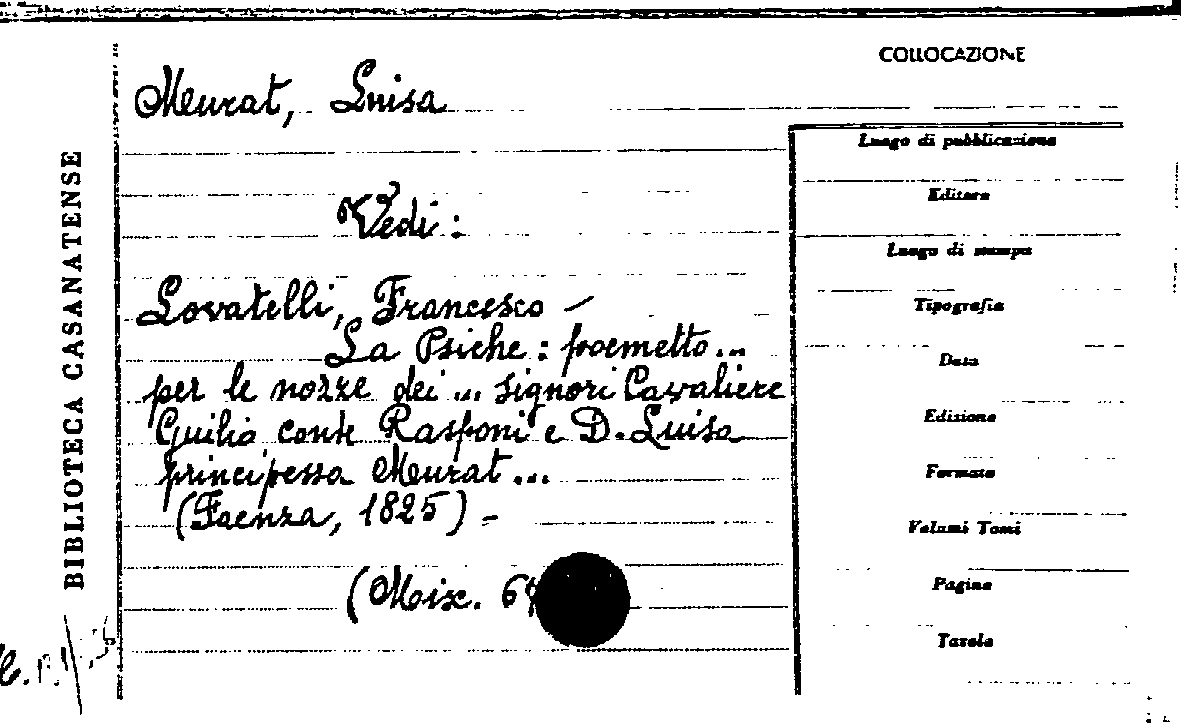 COLLOCAZIONE
Murat, Luisa
Vedi:
Lovatelli, Francesco -
La Psiche: poemetto...
per le nozze dei ... signori Cavaliere
Giulio conte Rasponi e D. Luisa
principessa Murat...
(Faenza, 1825) -
(Misc.
BIBLIOTECA CASANATENSE
Luogo di pubblicazione
Editore
Luogo di stampa
Tipografia
Data
Edizione
Formato
Volumi Tomi
Pagine
Tavole